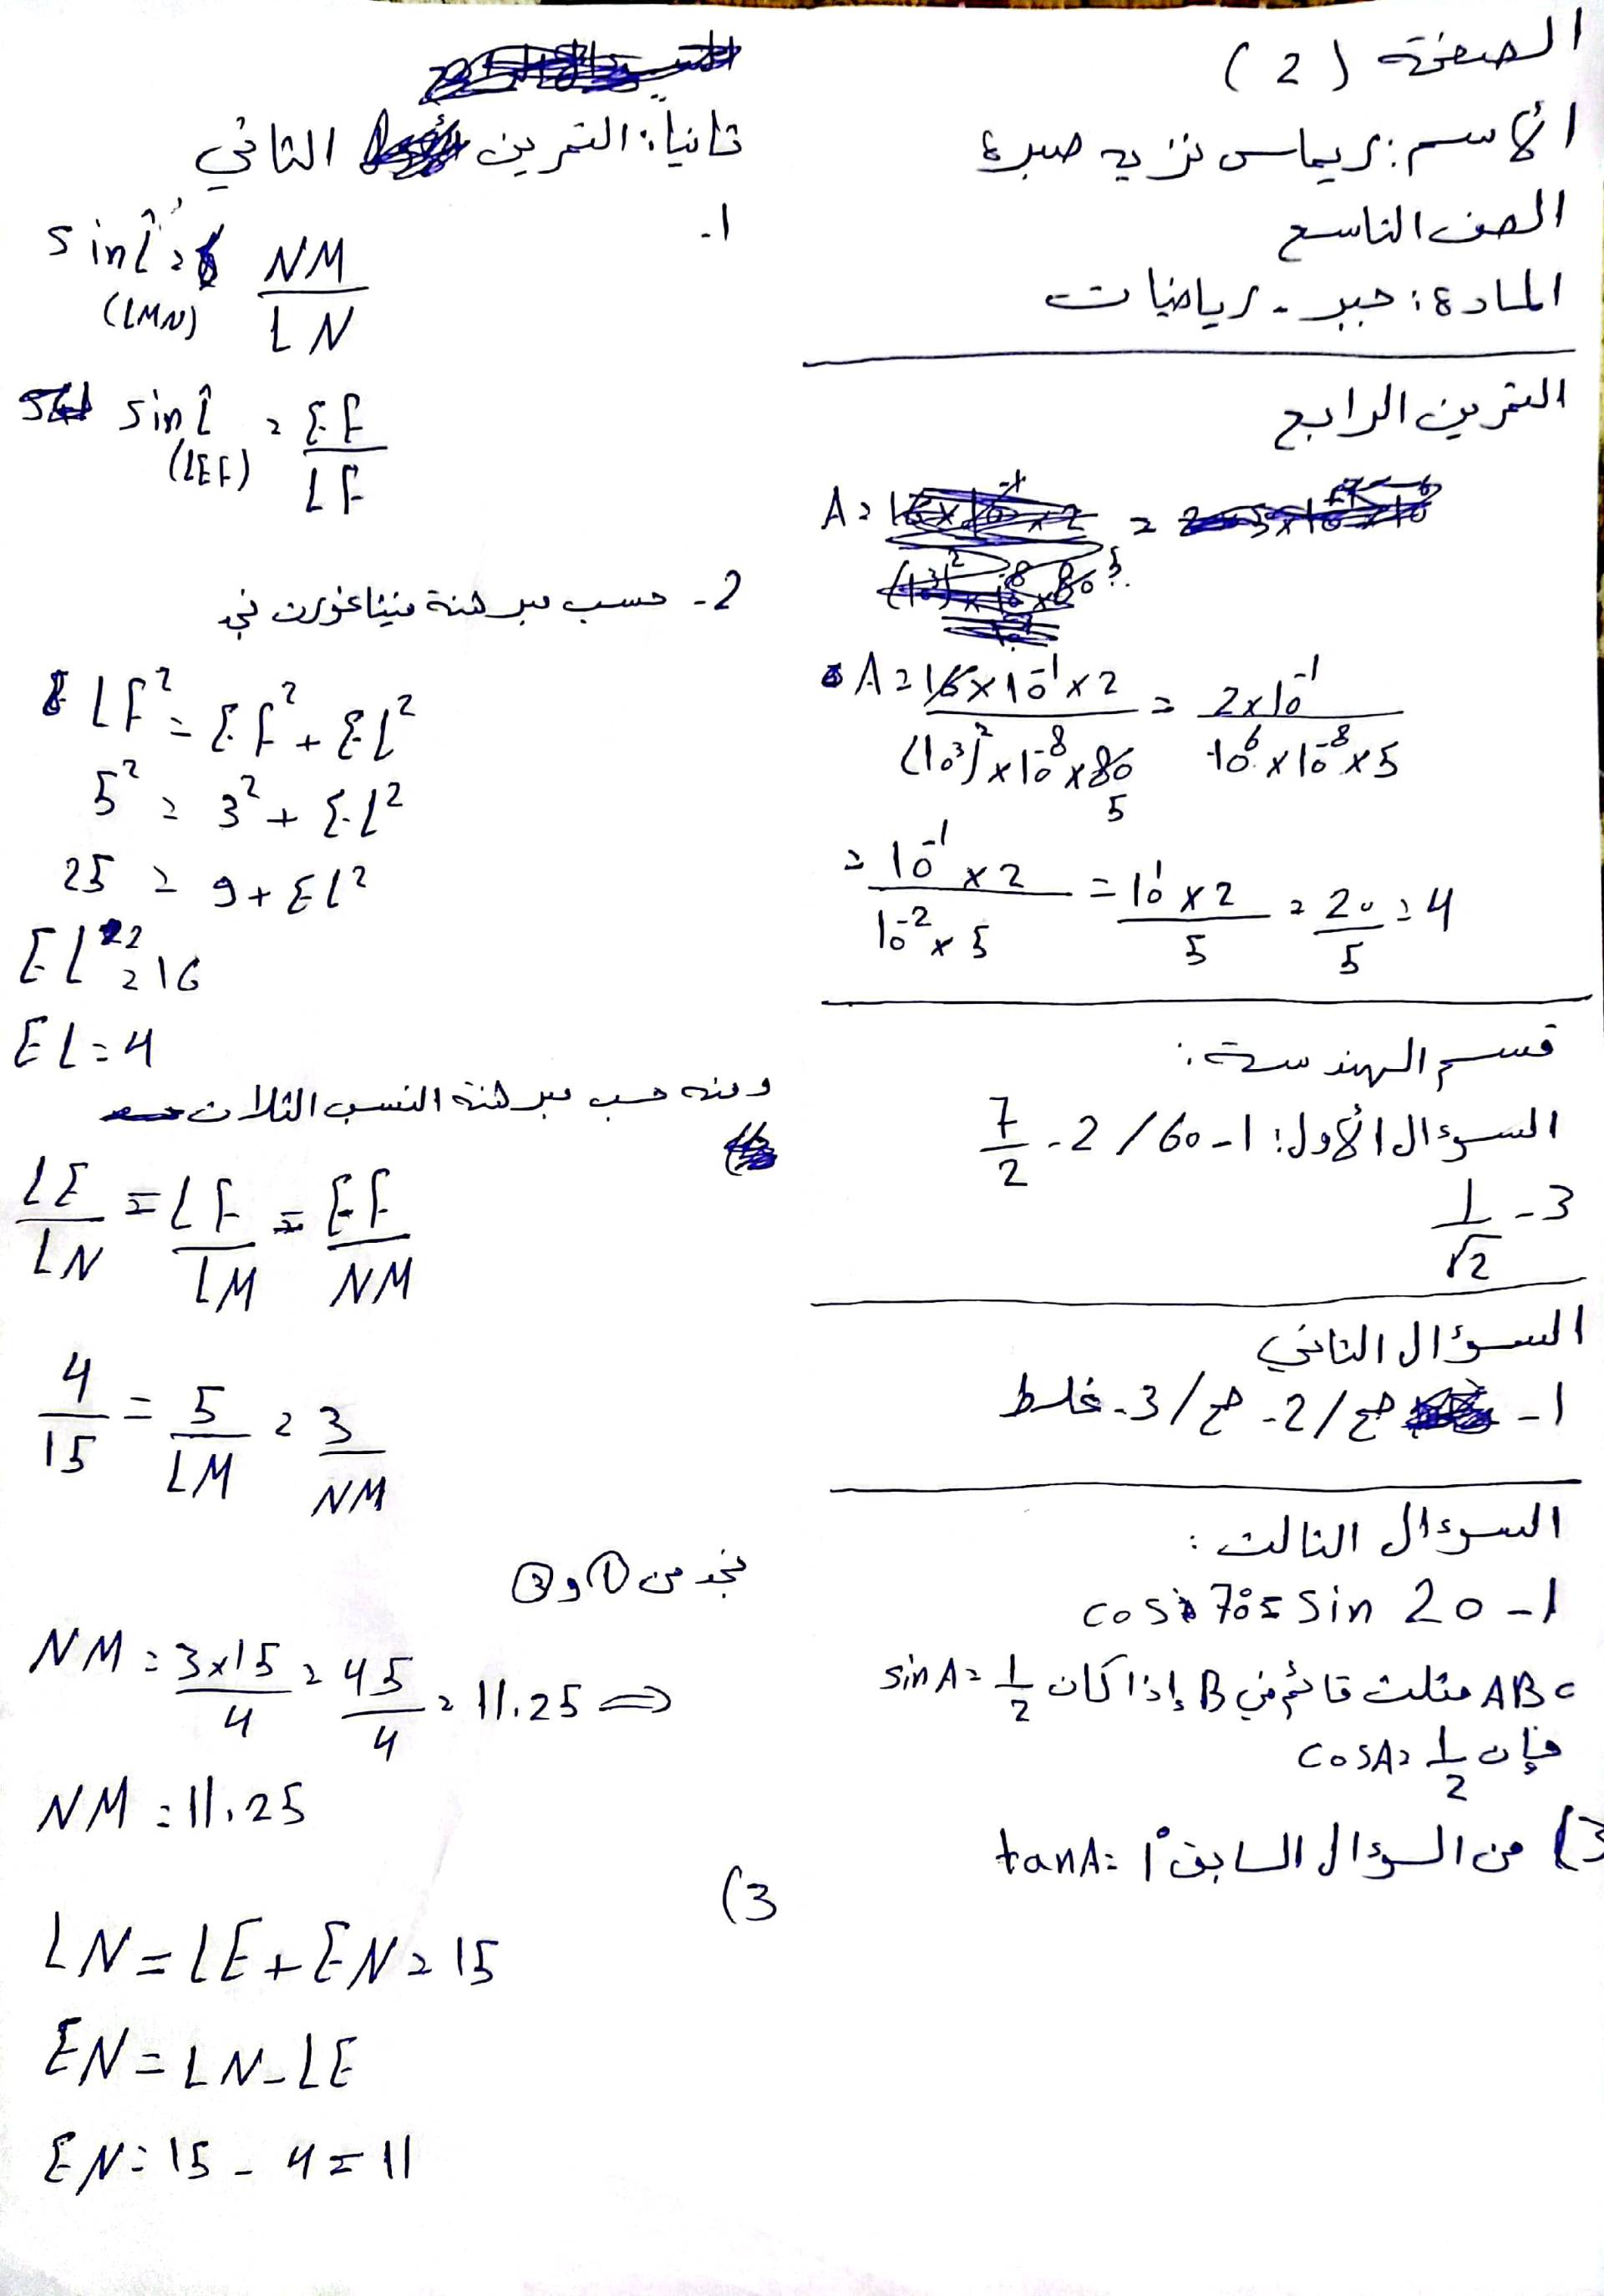 الصفحة (2)
الأسم: ريماس نزيه صبرة
الصف التاسع
المادة: جبر - رياضيات
التمرين الرابع
A = 16×10⁻¹×2 / (10³)²×10⁻⁸×80 5 = 2×10⁻¹ / 10⁶×10⁻⁸×5
= 10⁻¹×2 / 10⁻²×5 = 10¹×2 / 5 = 20/5 = 4
قسم الهندسة:
السوءال الأول: 1- 60 / 2- 7/2
3- 1/√2
السؤال الثاني
1- صح / 2- صح / 3- غلط
السوءال الثالث:
1- cos 70° = sin 20
ABC مثلث قائم في B إذا كان sinA = 1/2
فإن cosA = 1/2
3) من السؤال السابق tanA = 1°
ثانياً: التمرين الثاني
1.
sin L̂ (LMN) = NM/LN
sin L̂ (LEF) = EF/LF
2- حسب مبرهنة فيثاغورث نجد
LF² = EF² + EL²
5² = 3² + EL²
25 = 9 + EL²
EL² = 16
EL = 4
ومنه حسب مبرهنة النسب الثلاث
LE/LN = LF/LM = EF/NM
4/15 = 5/LM = 3/NM
نجد من ① و ③
NM = 3×15/4 = 45/4 = 11.25 ⇒
NM = 11.25
3)
LN = LE + EN = 15
EN = LN - LE
EN = 15 - 4 = 11